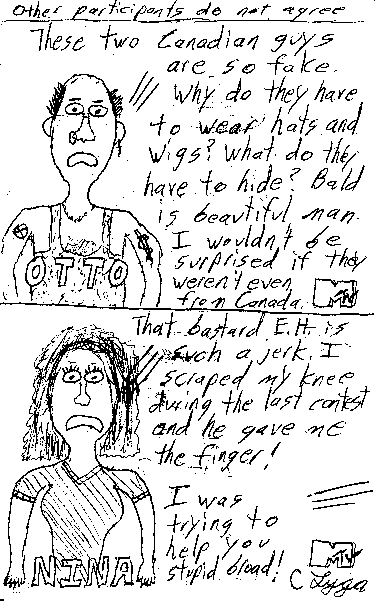 Other participants do not agree
These two Canadian guys
are so fake.
Why do they have
to wear hats and
wigs? What do they
have to hide? Bald
is beautiful man.
I wouldn't be
surprised if they
weren't even
from Canada.
OTTO
MTV
That bastard E.H. is
such a jerk. I
scraped my knee
during the last contest
and he gave me
the finger!
I was
trying to
help you
stupid bload!
NINA
MTV
C Lyga